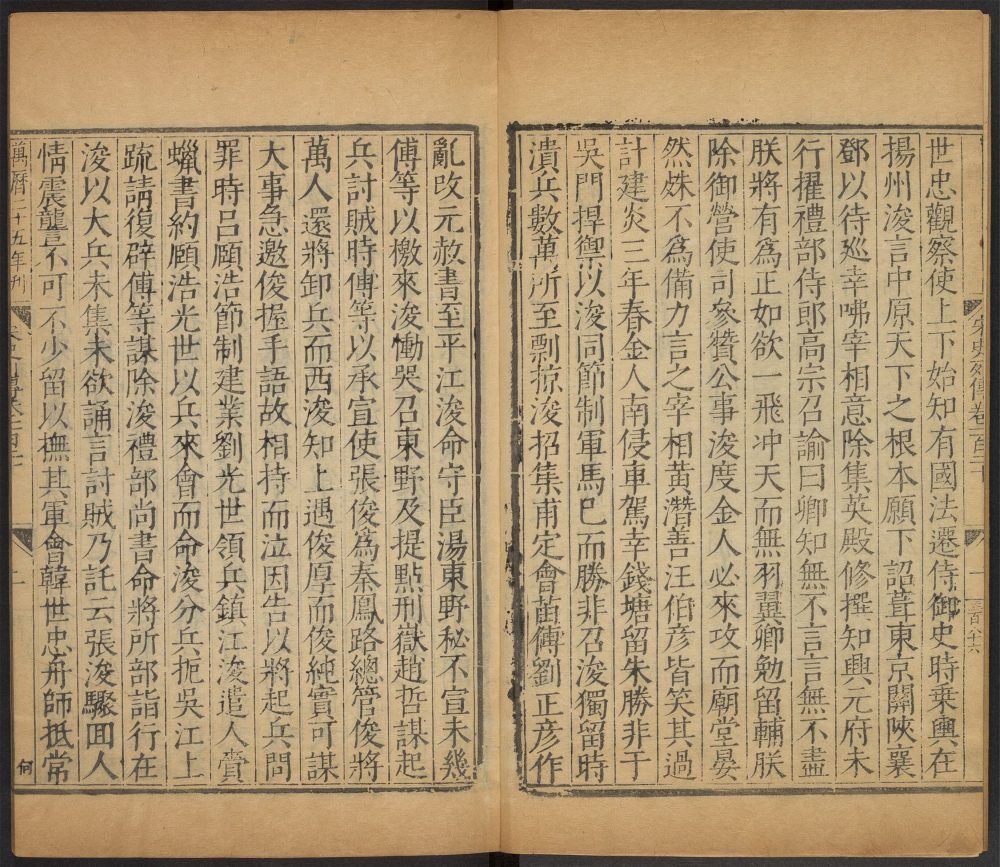 宋史列傳卷一百二十
世忠觀察使上下始知有國法遷侍御史時乗輿在
揚州浚言中原天下之根本願下詔葺東京關陝襄
鄧以待巡幸咈宰相意除集英殿修撰知興元府未
行擢禮部侍郎高宗召諭曰卿知無不言言無不盡
朕將有爲正如欲一飛冲天而無羽翼卿勉留輔朕
除御營使司參贊公事浚度金人必來攻而廟堂晏
然殊不爲備力言之宰相黃潛善汪伯彦皆笑其過
計建炎三年春金人南侵車駕幸錢塘留朱勝非于
吳門捍禦以浚同節制軍馬巳而勝非召浚獨留時
潰兵數萬所至剽掠浚招集甫定會苗傅劉正彦作
亂改元赦書至平江浚命守臣湯東野秘不宣未幾
傅等以檄來浚慟哭召東野及提點刑獄趙哲謀起
兵討賊時傅等以承宣使張俊爲秦鳳路總管俊將
萬人還將卸兵而西浚知上遇俊厚而俊純實可謀
大事急邀俊握手語故相持而泣因告以將起兵問
罪時吕頤浩節制建業劉光世領兵鎮江浚遣人齎
蠟書約頤浩光世以兵來會而命浚分兵扼吳江上
疏請復辟傅等謀除浚禮部尚書命將所部詣行在
浚以大兵未集未欲誦言討賊乃託云張浚驟囬人
情震讋不可不少留以撫其軍會韓世忠舟師抵常
萬曆二十五年刊
何